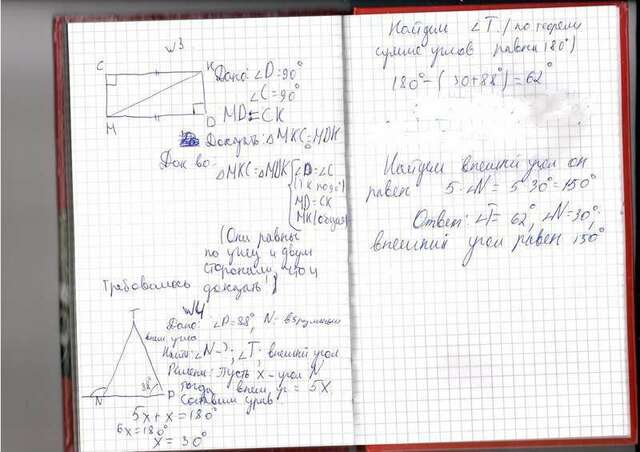 N3
C
K
M
D
Дано: ∠D=90°
∠C=90°
MD=CK
Доказать: △MKC=△MDK
Док во: △MKC=△MDK { ∠D=∠C
MD=CK
MK (общая)
(Они равны
по углу и двум
сторонам, что и
требовалось доказать)
N4
T
N
P
38°
Дано: ∠P=88°, N= в 5 раз меньше
внеш угла
Найти: ∠N-?; ∠T; внешний угол
Решение: Пусть X-угол N
тогда внеш. у = 5X
Составим урав
5x+x=180°
6x=180°
x=30°
Найдем ∠T. (по теореме
сумма углов равна 180°)
180°-(30+88°)=62°
Найдем внешний угол он
равен 5·∠N=5·30°=150°
Ответ: ∠T=62°, ∠N=30°,
внешний угол равен 150°